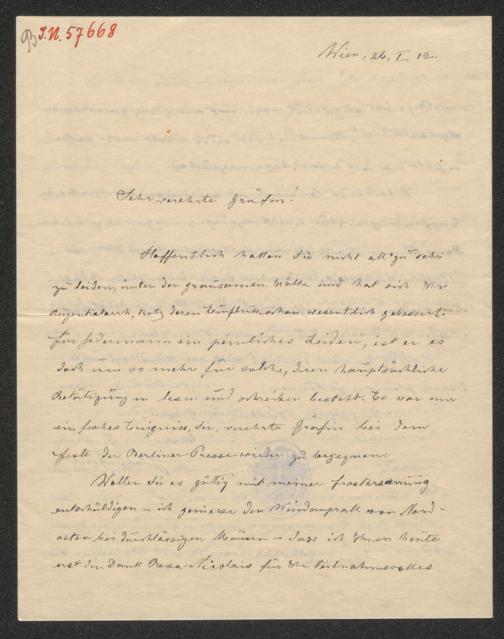 B J.N. 57668
Wien, 26. I. 12.
Sehr verehrte Gräfin!
Hoffentlich hatten Sie nicht allzu sehr
zu leiden, unter der grausamen Kälte und hat sich Ihr
Augenkatarrh, trotz deren Einfluss schon wesentlich gebessert.
Für jedermann ein peinliches Leiden, ist er es
doch um so mehr für solche, deren hauptsächliche
Betätigung in lesen und schreiben besteht. Es war mir
ein frohes Ereignis, Sie, verehrte Gräfin bei dem
Feste der Berliner Presse wieder zu begegnen.
Wollen Sie es gütig mit meiner Frosterstarrung
entschuldigen – ich geniesse den Windanprall von Nord-
osten bei durchlässigen Mauern – dass ich Ihnen heute
erst den Dank Rosa Nicolais für Ihr teilnahmsvolles